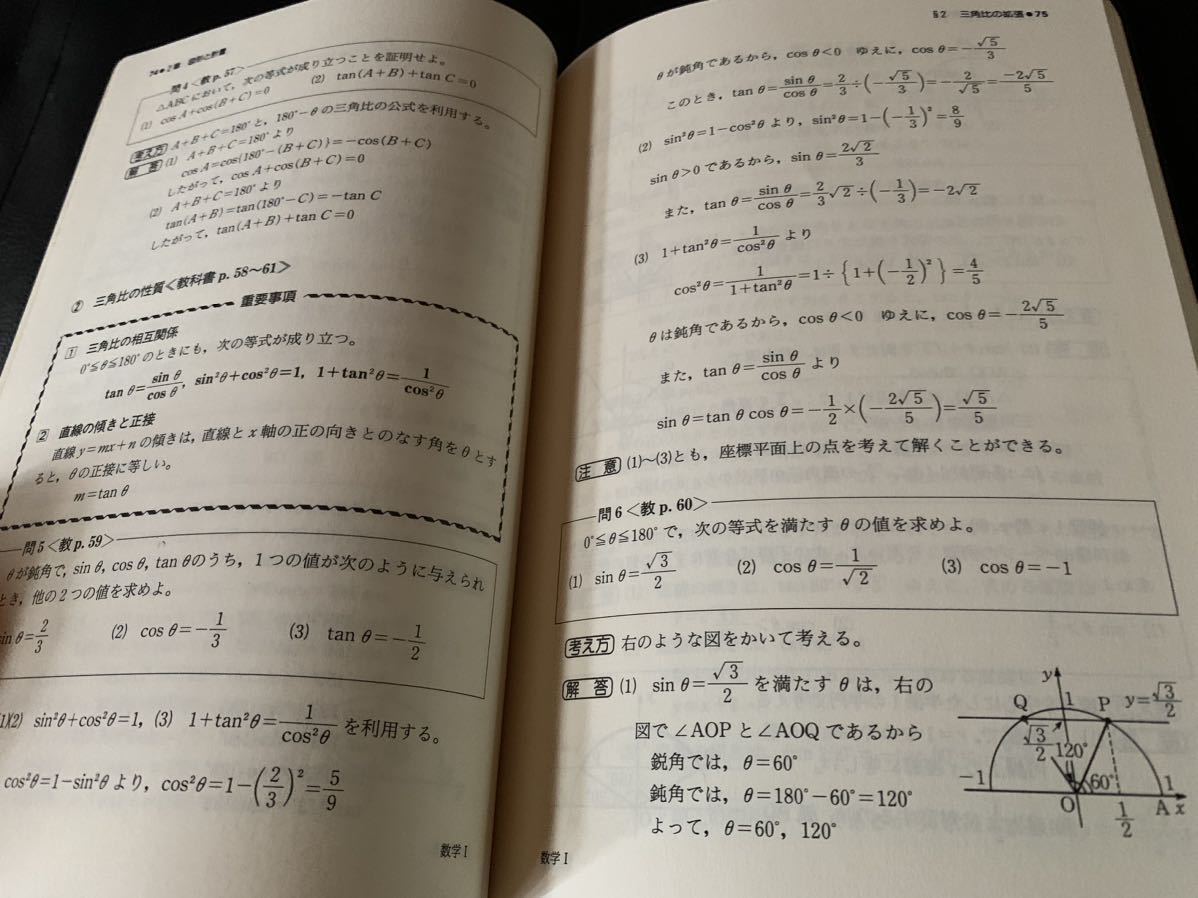 74●2章 図形と計量
問4<教p.57>
△ABCにおいて，次の等式が成り立つことを証明せよ。
(1) cos A+cos(B+C)=0 (2) tan(A+B)+tan C=0
考え方 A+B+C=180°と，180°−θの三角比の公式を利用する。
解 答 (1) A+B+C=180°より
cos A=cos{180°−(B+C)}=−cos(B+C)
したがって，cos A+cos(B+C)=0
(2) A+B+C=180°より
tan(A+B)=tan(180°−C)=−tan C
したがって，tan(A+B)+tan C=0
② 三角比の性質<教科書 p. 58〜61>
重要事項
1 三角比の相互関係
0°≦θ≦180°のときにも，次の等式が成り立つ。
tan θ=sin θ/cos θ, sin²θ+cos²θ=1, 1+tan²θ=1/cos²θ
2 直線の傾きと正接
直線 y=mx+n の傾きは，直線と x 軸の正の向きとのなす角を θ とす
ると，θの正接に等しい。
m=tan θ
問5<教p.59>
θが鈍角で，sin θ, cos θ, tan θのうち，1つの値が次のように与えられ
とき，他の2つの値を求めよ。
sin θ=2/3 (2) cos θ=−1/3 (3) tan θ=−1/2
1)(2) sin²θ+cos²θ=1, (3) 1+tan²θ=1/cos²θ を利用する。
cos²θ=1−sin²θ より，cos²θ=1−(2/3)²=5/9
数学Ⅰ
§2 三角比の拡張●75
θが鈍角であるから，cos θ<0 ゆえに，cos θ=−√5/3
このとき，tan θ=sin θ/cos θ=2/3÷(−√5/3)=−2/√5=−2√5/5
(2) sin²θ=1−cos²θ より，sin²θ=1−(−1/3)²=8/9
sin θ>0 であるから，sin θ=2√2/3
また，tan θ=sin θ/cos θ=2/3√2÷(−1/3)=−2√2
(3) 1+tan²θ=1/cos²θ より
cos²θ=1/1+tan²θ=1÷{1+(−1/2)²}=4/5
θは鈍角であるから，cos θ<0 ゆえに，cos θ=−2√5/5
また，tan θ=sin θ/cos θ より
sin θ=tan θ cos θ=−1/2×(−2√5/5)=√5/5
注 意 (1)〜(3)とも，座標平面上の点を考えて解くことができる。
問6<教p.60>
0°≦θ≦180°で，次の等式を満たす θ の値を求めよ。
(1) sin θ=√3/2 (2) cos θ=1/√2 (3) cos θ=−1
考え方 右のような図をかいて考える。
解 答 (1) sin θ=√3/2 を満たす θ は，右の
図で ∠AOP と ∠AOQ であるから
鋭角では，θ=60°
鈍角では，θ=180°−60°=120°
よって，θ=60°，120°
y
Q 1 P y=√3/2
√3/2 120°
60°
−1 O 1/2 A 1 x
数学Ⅰ